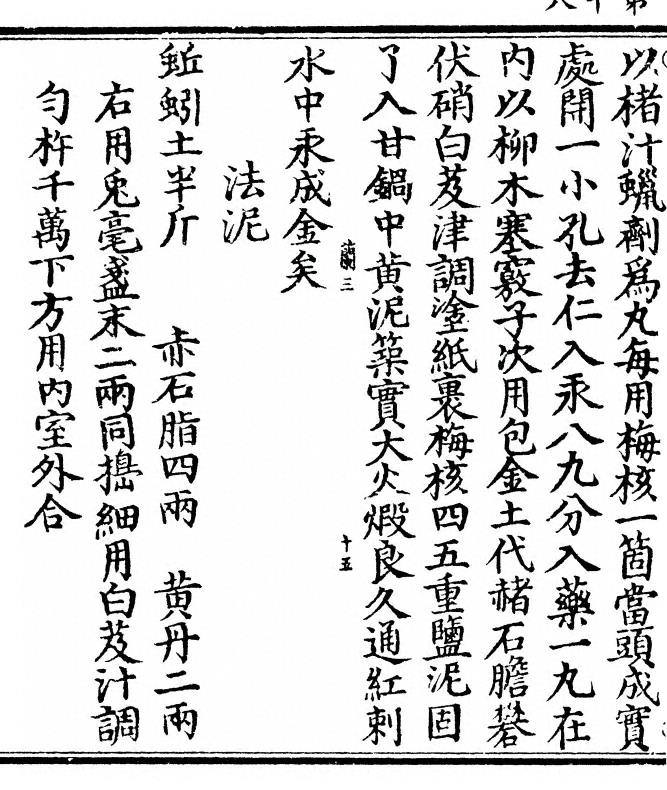 以楮汁蠟劑為丸每用梅核一箇當頭成實
處開一小孔去仁入汞八九分入藥一丸在
内以柳木塞竅子次用包金土代赭石膽礬
伏硝白芨津調塗紙裹梅核四五重鹽泥固
了入甘鍋中黄泥築實大火煅良久通紅刺
三
十五
水中汞成金矣
法泥
蚯蚓土半斤 赤石脂四兩 黄丹二兩
右用兎毫盞末二兩同擣細用白芨汁調
勻杵千萬下方用内室外合